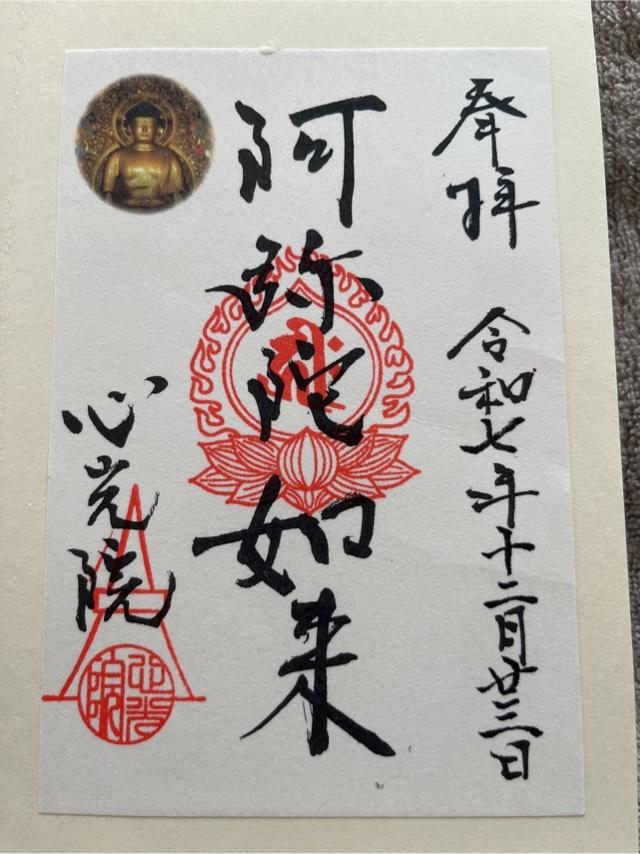 奉拝
令和七年十二月廿三日
阿弥陀如来
心光院